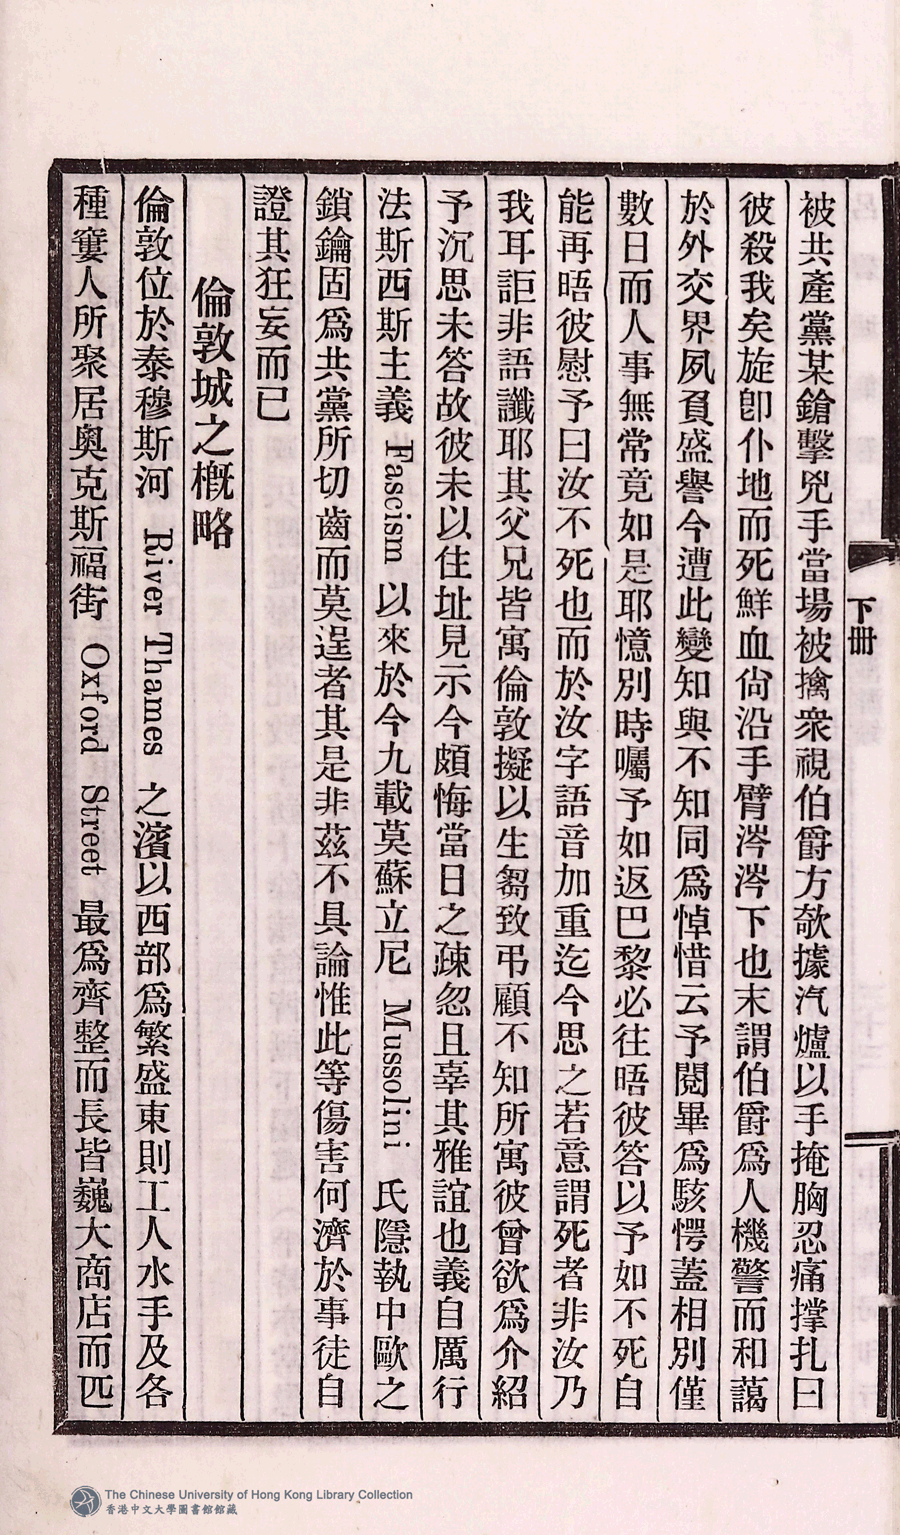 下冊
被共產黨某鎗擊兇手當場被擒衆視伯爵方欹據汽爐以手掩胸忍痛撑扎曰
彼殺我矣旋卽仆地而死鮮血尙沿手臂涔涔下也末謂伯爵爲人機警而和藹
於外交界夙負盛譽今遭此變知與不知同爲悼惜云予閱畢爲駭愕蓋相別僅
數日而人事無常竟如是耶憶別時囑予如返巴黎必往晤彼答以予如不死自
能再晤彼慰予曰汝不死也而於汝字語音加重迄今思之若意謂死者非汝乃
我耳詎非語讖耶其父兄皆寓倫敦擬以生芻致弔顧不知所寓彼曾欲爲介紹
予沉思未答故彼未以住址見示今頗悔當日之疎忽且辜其雅誼也義自厲行
法斯西斯主義 Fascism 以來於今九載莫蘇立尼 Mussolini 氏隱執中歐之
鎖鑰固爲共黨所切齒而莫逞者其是非茲不具論惟此等傷害何濟於事徒自
證其狂妄而已
倫敦城之槪略
倫敦位於泰穆斯河 River Thames 之濱以西部爲繁盛東則工人水手及各
種窶人所聚居奧克斯福街 Oxford Street 最爲齊整而長皆巍大商店而匹
The Chinese University of Hong Kong Library Collection
香港中文大學圖書館館藏